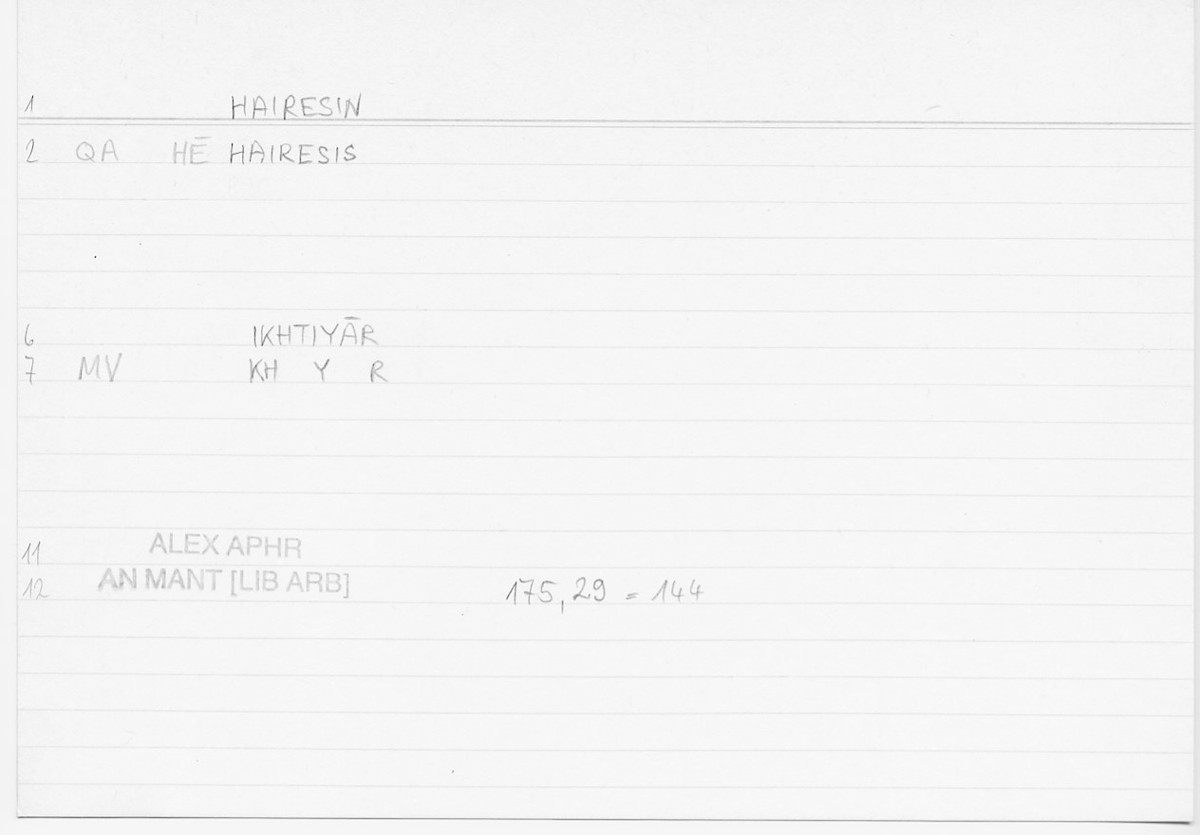 1 HAIRESIN
2 QA HĒ HAIRESIS
6 IKHTIYĀR
7 MV KH Y R
11 ALEX APHR
12 AN MANT [LIB ARB] 175,29 = 144